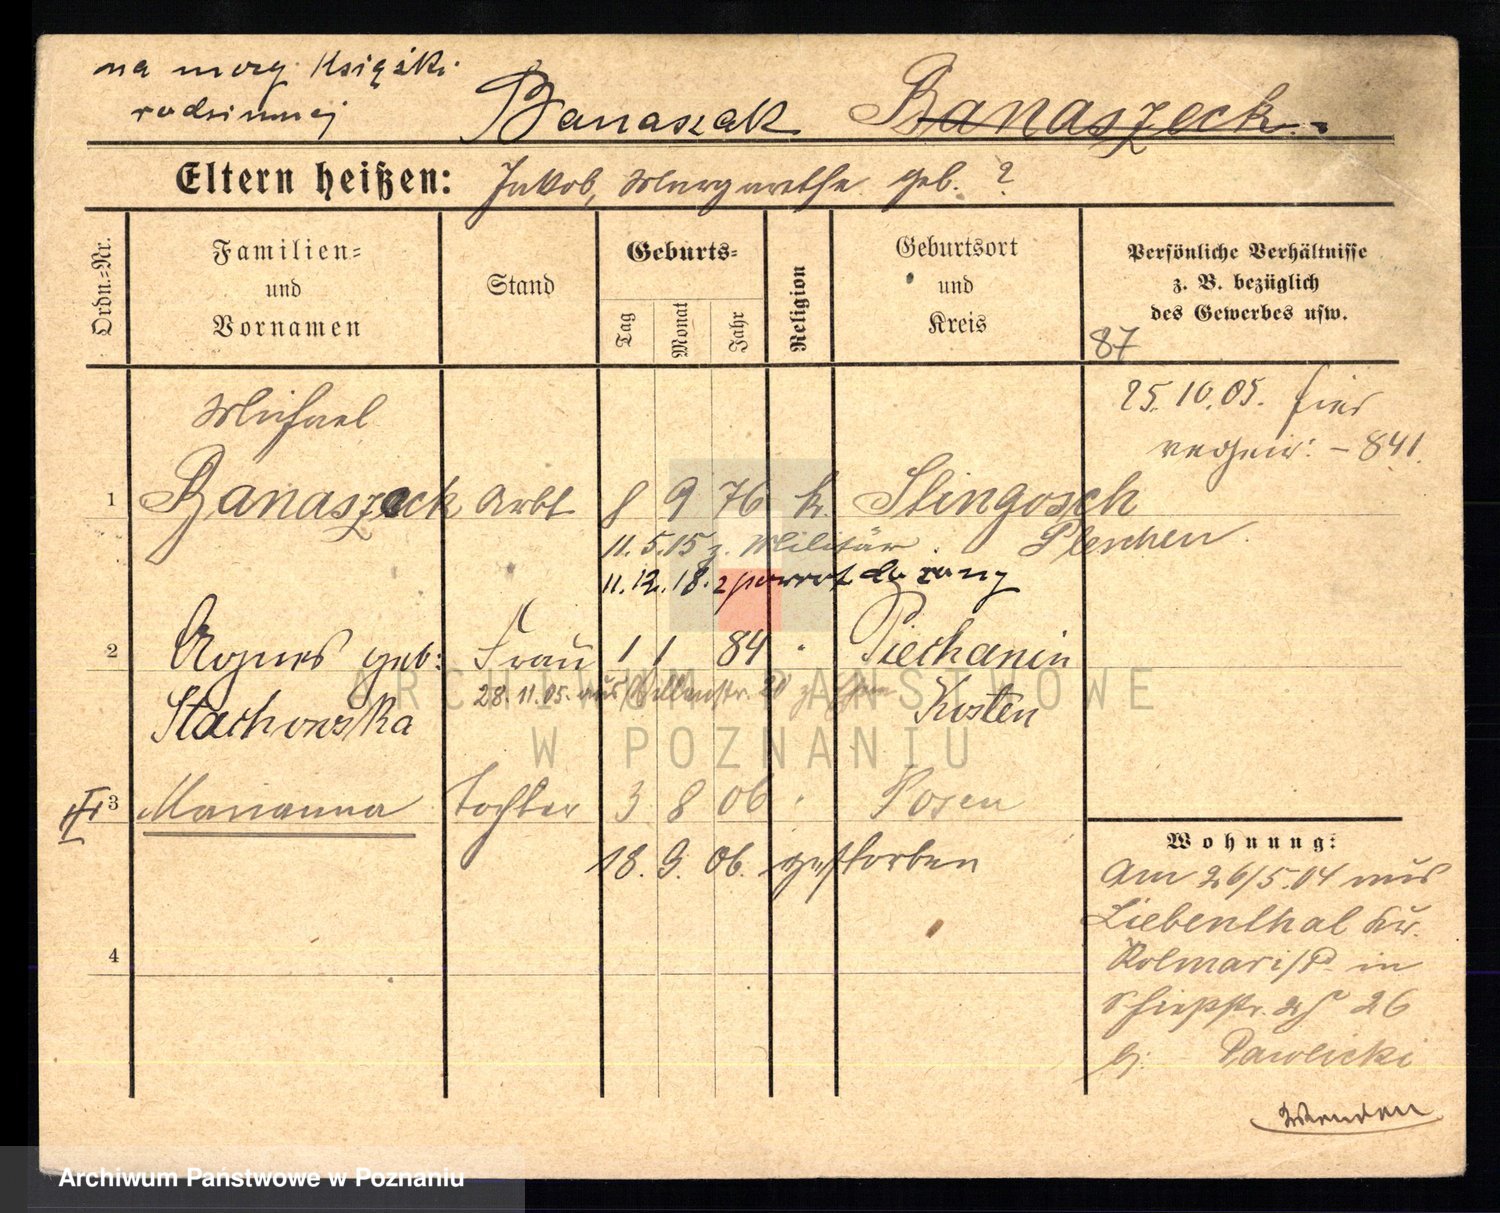 na mocy Książki
rodzinnej
Banaszak Banaszeck.
Eltern heißen: Jakob, Margarethe geb. ?
Ordn.-Nr.
Familien-
und
Vornamen
Stand
Geburts-
Tag
Monat
Jahr
Religion
Geburtsort
und
Kreis
Persönliche Verhältnisse
z. B. bezüglich
des Gewerbes usw.
87
25.10.05. hier
- 841.
Michael
1 Banaszeck Arbt 8 9 76 k. Slingosch
11.5.15 z. Militär. Pleschen.
11.12.18. z powrotem
2 Agnes geb: Frau 1 1 84 " Piechanin
28.11.05. aus
Stachowska Kosten
3 Marianna Tochter 3 8 06 " Posen
18. 9. 06. gestorben
4
Wohnung:
Am 26/5.04 aus
Liebenthal Kr.
Kolmar i/P. in
Schießstr. 26
b: Pawlicki
Wenden
ARCHIWUM PAŃSTWOWE
W POZNANIU
Archiwum Państwowe w Poznaniu